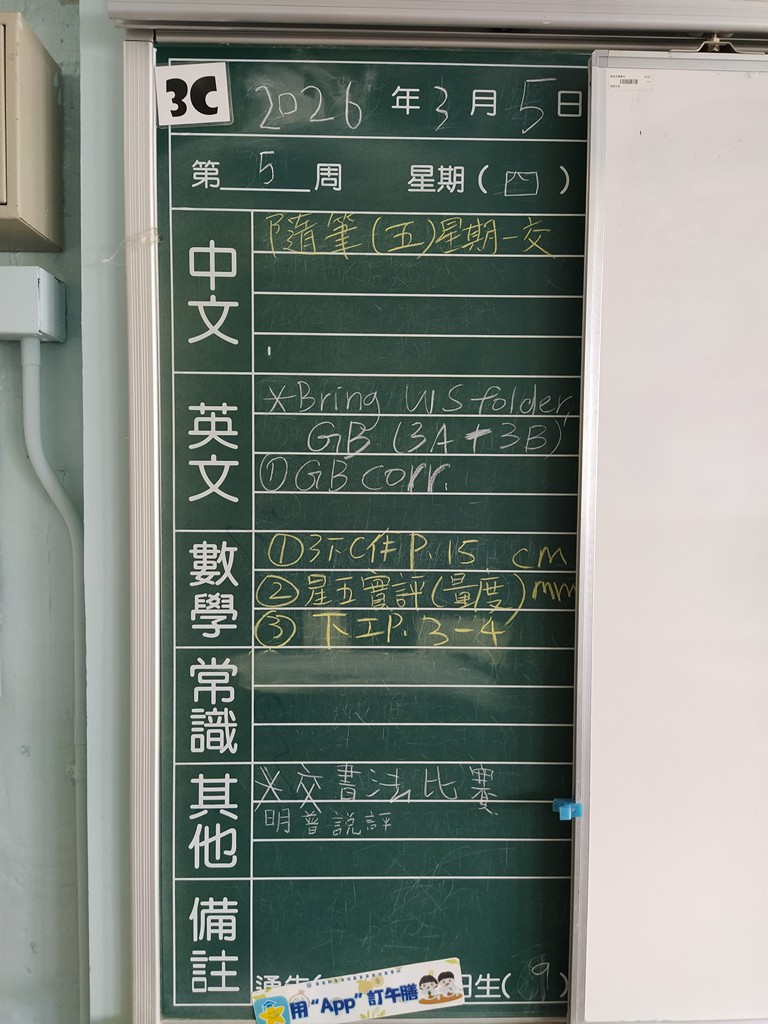 3C
2026年3月5日
第5周 星期(四)
中文
隨筆(五)星期一交
英文
*Bring WS folder,
GB (3A+3B)
①GB corr.
數學
①3下C作P.15 cm
②星五實評(量度)mm
③下工P.3-4
常識
其他
*交書法比賽
明普說評
備註
日生(9)
用"App"訂午膳